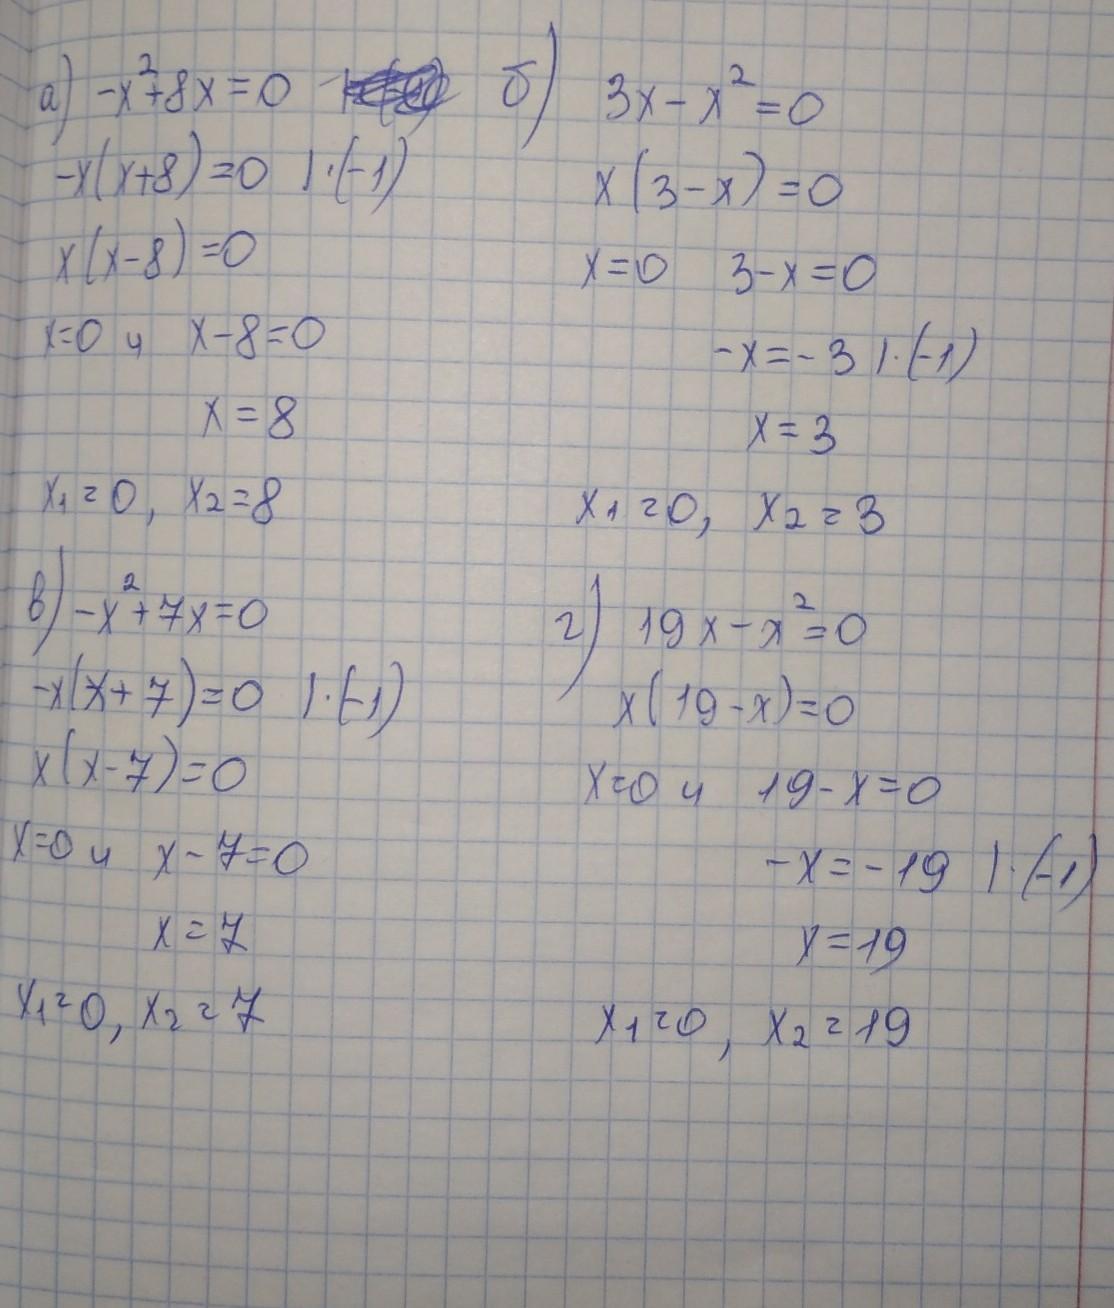 а) -x²+8x=0
-x(x+8)=0 |·(-1)
x(x-8)=0
x=0 и x-8=0
x=8
x₁=0, x₂=8
б) 3x-x²=0
x(3-x)=0
x=0 3-x=0
-x=-3 |·(-1)
x=3
x₁=0, x₂=3
в) -x²+7x=0
-x(x+7)=0 |·(-1)
x(x-7)=0
x=0 и x-7=0
x=7
x₁=0, x₂=7
г) 19x-x²=0
x(19-x)=0
x=0 и 19-x=0
-x=-19 |·(-1)
x=19
x₁=0, x₂=19